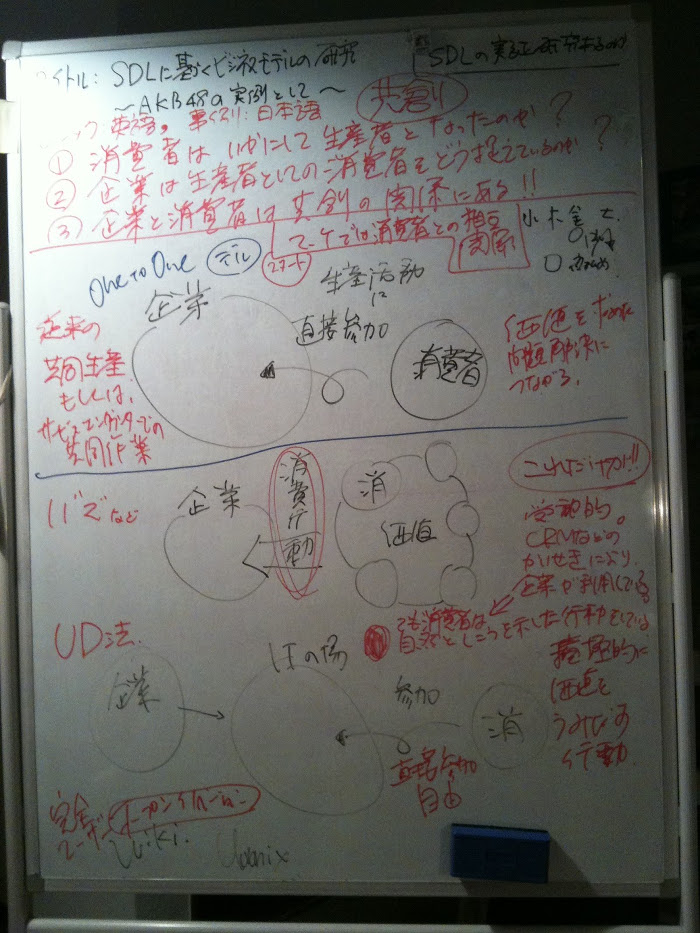 イトル: SDLに基くビジネスモデルの研究
SDLの実証
〜AKB48の実例として〜
共創り
英語。
日本語
① 消費者はいかにして生産者となったのか?
② 企業は生産者としての消費者をどう捉えているのか?
③ 企業と消費者は共創の関係にある!!
マーケでは消費者との相互関係
スタート
小木
One to One モデル
企業
生産活動に
直接参加
消費者
従来の
共同生産
もしくは、
共同作業
価値を求め
問題解決に
つながる。
バズなど
企業
消費行動
消
価値
これだけ
CRMなどの
かいせきにより、
企業が利用している
でも消費者は
自然としころを示した行動をしている
UD法
企業
ITの場
参加
消
直接参加
自由
積極的に
価値を
うみだす
行動
完全
ユーザー
オープンイノベーション
Wiki.